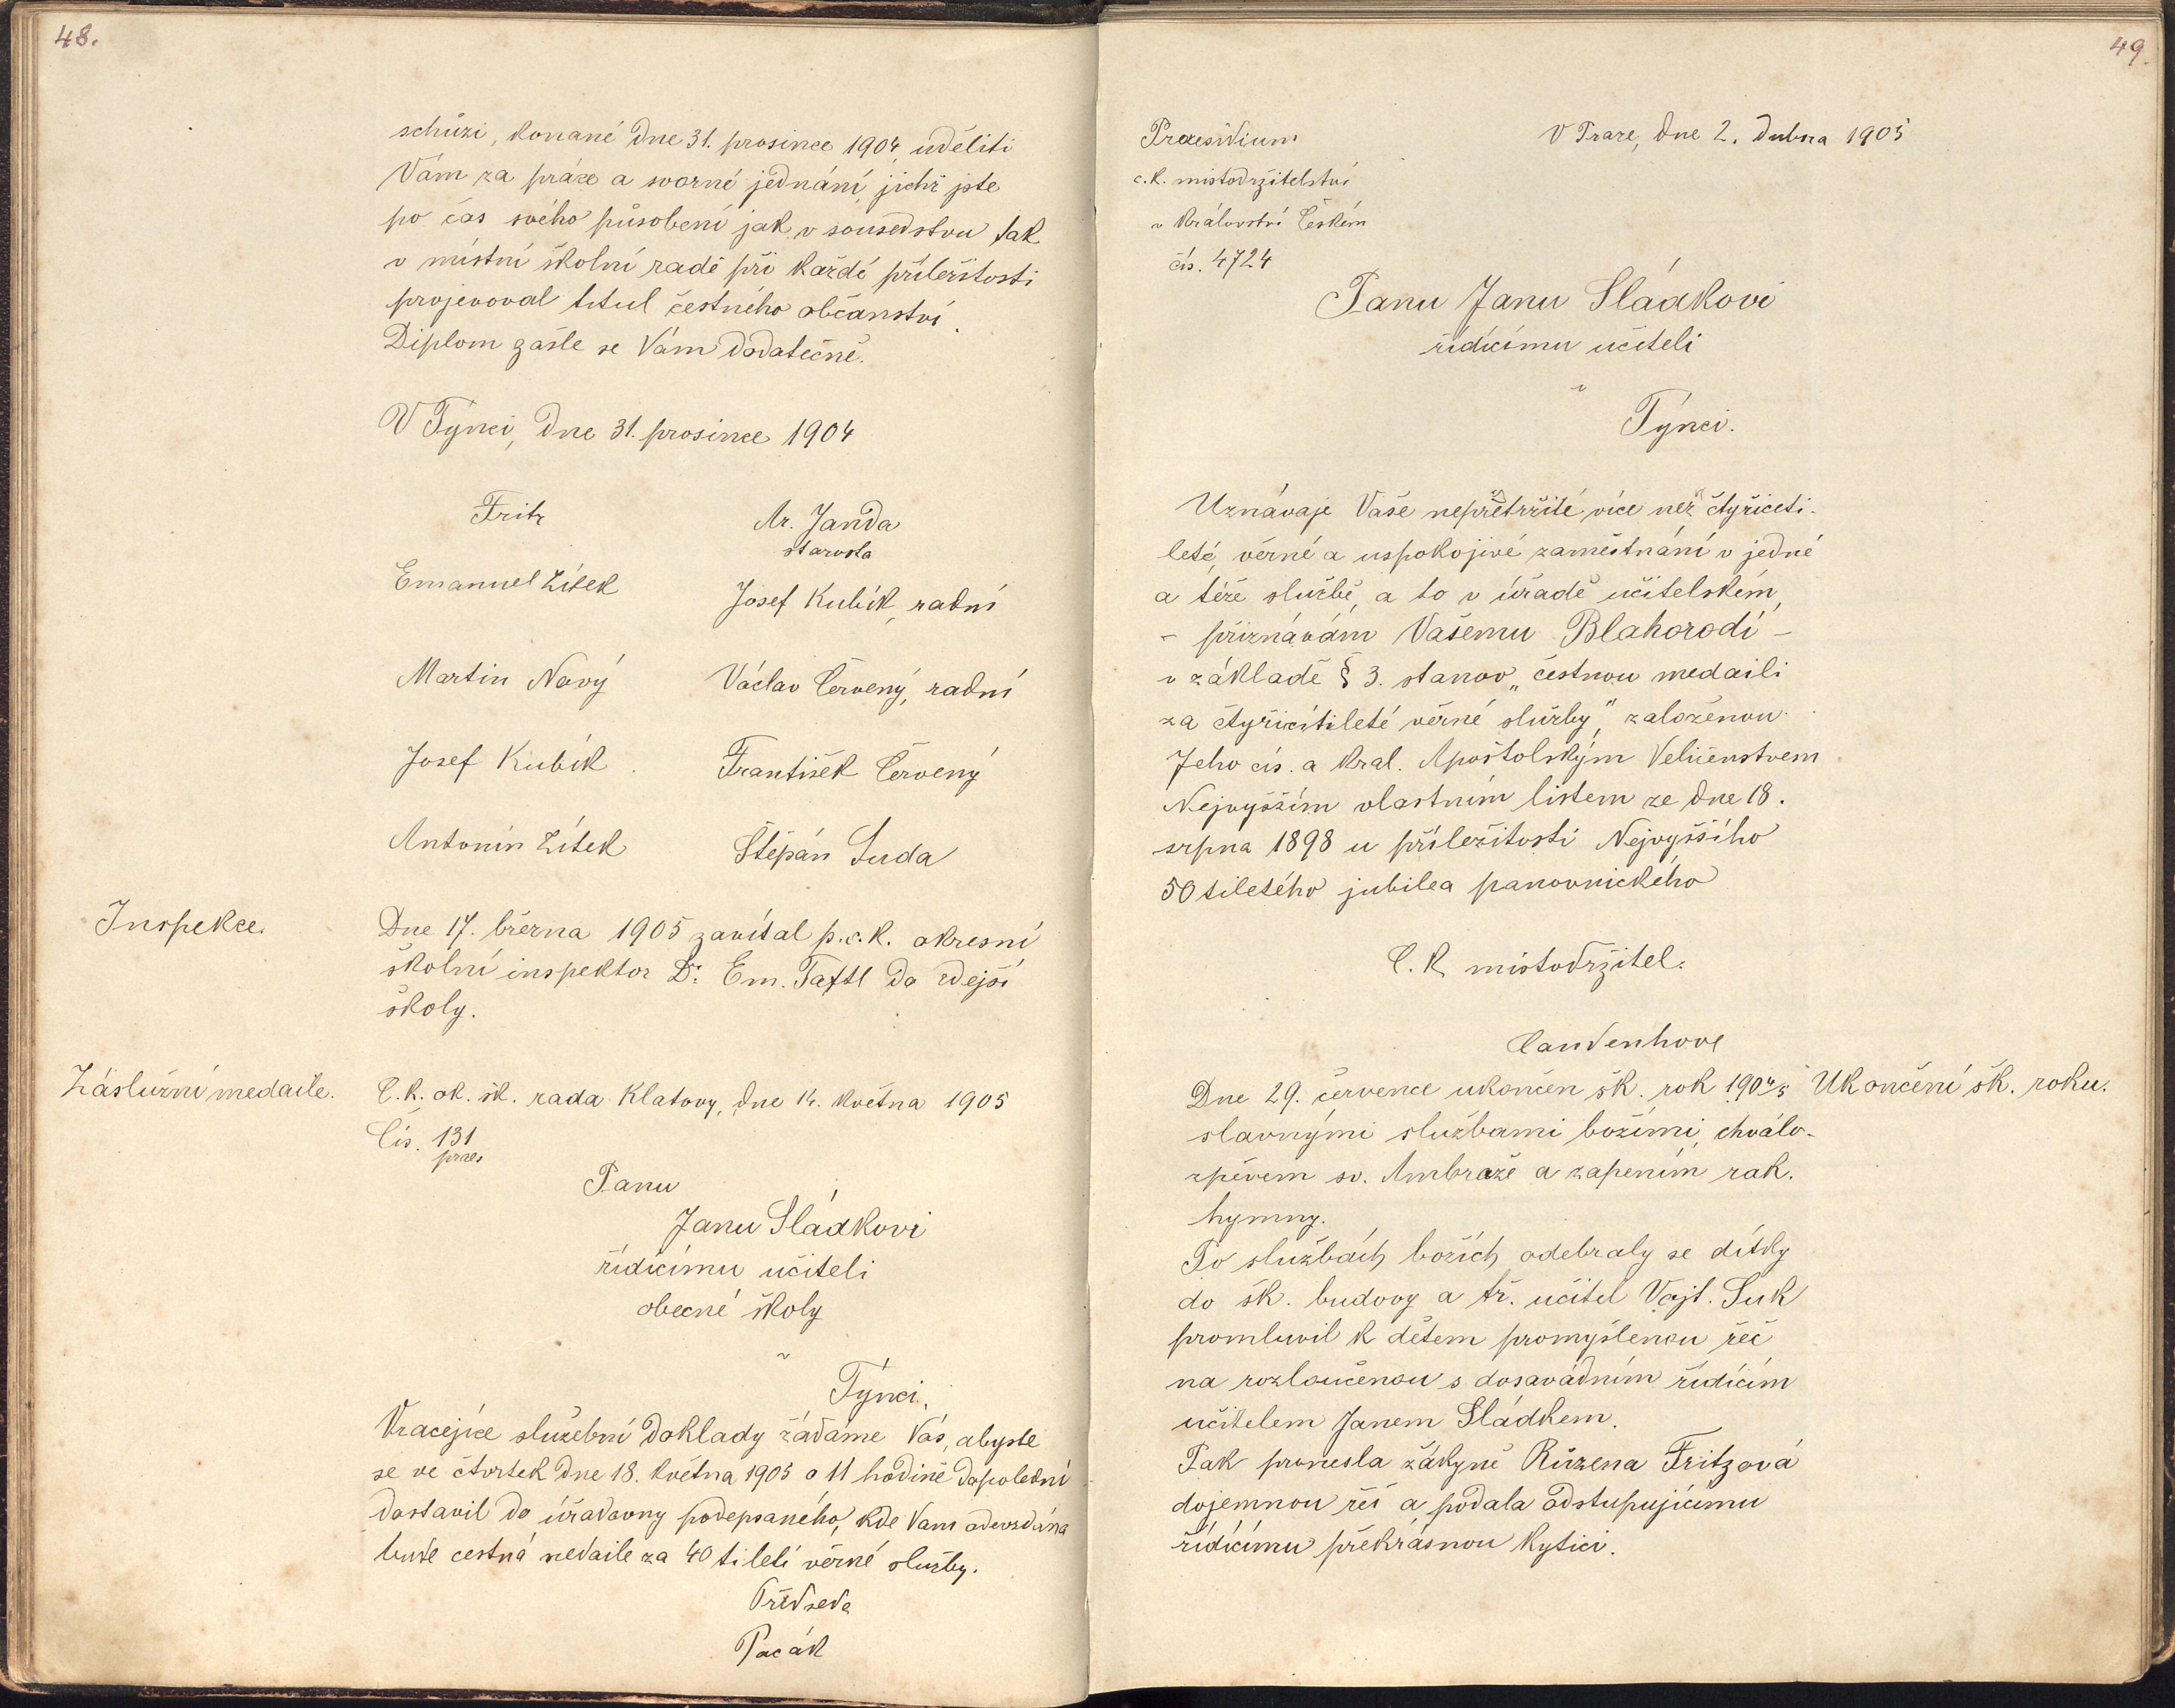 48.
schůzi, konané dne 31. prosince 1904, uděliti
Vám za práce a svorné jednání, jichž jste
po čas svého působení jak v sousedstvu tak
v místní školní radě při každé příležitosti
projevoval titul čestného občanství.
Diplom zašle se Vám dodatečně.
V Týnci, dne 31. prosince 1904
Fritz
Ar. Janda
starosta
Emanuel Zítek
Josef Kubík, radní
Martin Nový
Václav Červený, radní
Josef Kubík
František Červený
Antonín Zítek
Štěpán Suda
Inspekce.
Dne 17. března 1905 zavítal p. c. k. okresní
školní inspektor Dr. Em. Taftl do zdejší
školy.
Záslužní medaile.
C. k. ok. šk. rada Klatovy, dne 14. května 1905
Čís. 131
praes
Panu
Janu Sládkovi
řídícímu učiteli
obecné školy
v
Týnci.
Vracejíce služební doklady žádáme Vás, abyste
se ve čtvrtek dne 18. května 1905 o 11 hodině dopolední
dostavil do úřadovny podepsaného, kde Vam odevzdána
bude cestná medaile za 40 tiletí věrné služby.
Předseda
Pacák
49.
Praesidium
c. k. místodržitelství
v Království Českém
čís. 4724
V Praze, dne 2. dubna 1905
Panu Janu Sládkovi
řídícímu učiteli
v
Týnci.
Uznávaje Vaše nepřetržité více než čtyřiceti-
leté, věrné a uspokojivé zaměstnání v jedné
a téže službě, a to v úřadě učitelském,
– přiznávám Vašemu Blahorodí –
v základě § 3. stanov „čestnou medaili
za čtyřicítileté věrné služby“, založenou
Jeho cís. a Král. Apoštolským Veličenstvem
Nejvyšším vlastním listem ze dne 18.
srpna 1898 u příležitosti Nejvyššího
50tiletého jubilea panovnického
C. k. místodržitel.
Coudenhove
Dne 29. července ukončen šk. rok 1904/5
Ukončení šk. roku.
slavnými službami božími, chválo-
zpěvem sv. Ambrože a zapením rak.
hymny.
Po službách božích odebraly se dítky
do šk. budovy a tř. učitel Vojt. Suk
promluvil k dětem promyšlenou řeč
na rozloučenou s dosavádním řídícím
učitelem Janem Sládkem.
Pak pronesla žákyně Růžena Fritzová
dojemnou řeč a podala odstupujícímu
řídícímu překrásnou kytici.